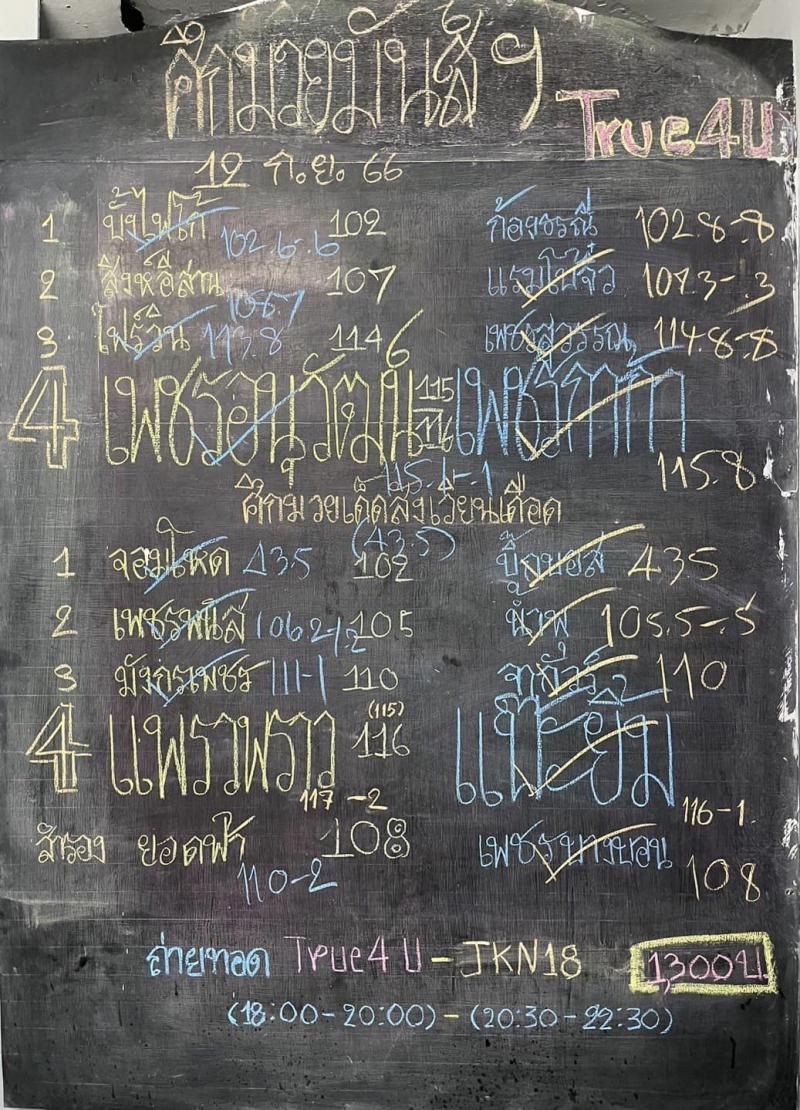 ศึกมวยมันส์ ฯ
True4U
12 ก.ย. 66
1 บั้งไฟโก้ 102.6-.6 102 ก้อยธรณี 102.8-.8
2 สิงห์อีสาน 108.7 107 แรมโบ้จิ๋ว 107.3-.3
3 ไฟร์วิน 113.8 114 เพชรสุวรรณ 114.8-.8
4 เพชรอนุวัฒน์ 115 116 115.1-.1 115.8
ศึกมวยเด็ดสังเวียนเดือด
1 จอมโหด 435 (43.5) 102 บิ๊กบอส 435
2 เพชรพนัส 106.2-1.2 105 น้ำพุ 105.5-.5
3 มังกรเพชร 111-1 110 110
4 แพรวพราว (115) 116 117-2 แป๊ะยิ้ม 116-1
สำรอง ยอดฟ้า 108 110-2 เพชรบางบอน 108
ถ่ายทอด True4U - JKN18 1,300บ.
(18:00-20:00) - (20:30-22:30)